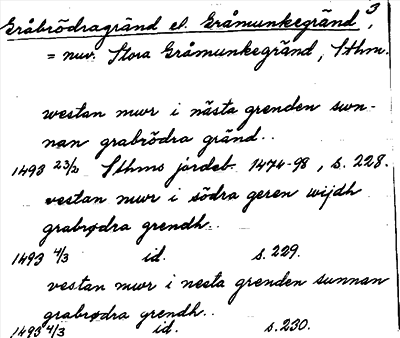 Gråbrödragränd el. Gråmunkegränd, 3
= nuv. Stora Gråmunkegränd, Sthm.
westan mwr i nästa grenden swn-
nan grabrödra gränd..
1493 23/2 Sthms jordeb. 1474-98, s. 228.
vestan mwr i södra geren wijdh
grabrødra grendh..
1493 4/3 id. s. 229.
vestan mwr i nesta grenden sunnan
grabrødra grendh..
1493 4/3 id. s. 230.